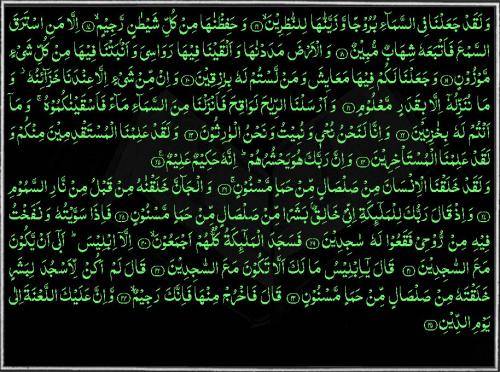 وَلَقَدْ جَعَلْنَا فِى السَّمَآءِ بُرُوْجًا وَّ زَيَّنّٰهَا لِلنّٰظِرِيْنَ ۙ‏﴿۱۶﴾ وَ حَفِظْنٰهَا مِنْ كُلِّ شَيْطٰنٍ رَّجِيْمٍۙ‏﴿۱۷﴾ اِلَّا مَنِ اسْتَرَقَ
السَّمْعَ فَاَتْبَعَهٗ شِهَابٌ مُّبِيْنٌ‏﴿۱۸﴾ وَ الْاَرْضَ مَدَدْنٰهَا وَ اَلْقَيْنَا فِيْهَا رَوَاسِىَ وَ اَنْۢبَتْنَا فِيْهَا مِنْ كُلِّ شَىْءٍ
مَّوْزُوْنٍ‏﴿۱۹﴾ وَ جَعَلْنَا لَكُمْ فِيْهَا مَعَايِشَ وَ مَنْ لَّسْتُمْ لَهٗ بِرٰزِقِيْنَ‏﴿۲۰﴾ وَ اِنْ مِّنْ شَىْءٍ اِلَّا عِنْدَنَا خَزَآئِنُهٗ وَ
مَا نُنَزِّلُهٗۤ اِلَّا بِقَدَرٍ مَّعْلُوْمٍ‏﴿۲۱﴾ وَ اَرْسَلْنَا الرِّيٰحَ لَوَاقِحَ فَاَنْزَلْنَا مِنَ السَّمَآءِ مَآءً فَاَسْقَيْنٰكُمُوْهُۚ وَ مَاۤ
اَنْتُمْ لَهٗ بِخٰزِنِيْنَ‏﴿۲۲﴾ وَ اِنَّا لَنَحْنُ نُحْىٖ وَ نُمِيْتُ وَ نَحْنُ الْوٰرِثُوْنَ‏﴿۲۳﴾ وَ لَقَدْ عَلِمْنَا الْمُسْتَقْدِمِيْنَ مِنْكُمْ وَ
لَقَدْ عَلِمْنَا الْمُسْتَاْخِرِيْنَ‏﴿۲۴﴾ وَ اِنَّ رَبَّكَ هُوَ يَحْشُرُهُمْؕ اِنَّهٗ حَكِيْمٌ عَلِيْمٌ‏﴿۲۵﴾
وَ لَقَدْ خَلَقْنَا الْاِنْسَانَ مِنْ صَلْصَالٍ مِّنْ حَمَاٍ مَّسْنُوْنٍۚ‏﴿۲۶﴾ وَ الْجَآنَّ خَلَقْنٰهُ مِنْ قَبْلُ مِنْ نَّارِ السَّمُوْمِ
‏﴿۲۷﴾ وَ اِذْ قَالَ رَبُّكَ لِلْمَلٰٓئِكَةِ اِنِّىْ خَالِقٌۢ بَشَرًا مِّنْ صَلْصَالٍ مِّنْ حَمَاٍ مَّسْنُوْنٍ‏﴿۲۸﴾ فَاِذَا سَوَّيْتُهٗ وَ نَفَخْتُ
فِيْهِ مِنْ رُّوْحِىْ فَقَعُوْا لَهٗ سٰجِدِيْنَ‏﴿۲۹﴾ فَسَجَدَ الْمَلٰٓئِكَةُ كُلُّهُمْ اَجْمَعُوْنَۙ‏﴿۳۰﴾ اِلَّاۤ اِبْلِيْسَؕ اَبٰٓى اَنْ يَّكُوْنَ
مَعَ السّٰجِدِيْنَ‏﴿۳۱﴾ قَالَ يٰۤاِبْلِيْسُ مَا لَكَ اَلَّا تَكُوْنَ مَعَ السّٰجِدِيْنَ‏﴿۳۲﴾ قَالَ لَمْ اَكُنْ لِّاَسْجُدَ لِبَشَرٍ
خَلَقْتَهٗ مِنْ صَلْصَالٍ مِّنْ حَمَاٍ مَّسْنُوْنٍ‏﴿۳۳﴾ قَالَ فَاخْرُجْ مِنْهَا فَاِنَّكَ رَجِيْمٌۙ‏﴿۳۴﴾ وَّ اِنَّ عَلَيْكَ اللَّعْنَةَ اِلٰى
يَوْمِ الدِّيْنِ‏﴿۳۵﴾